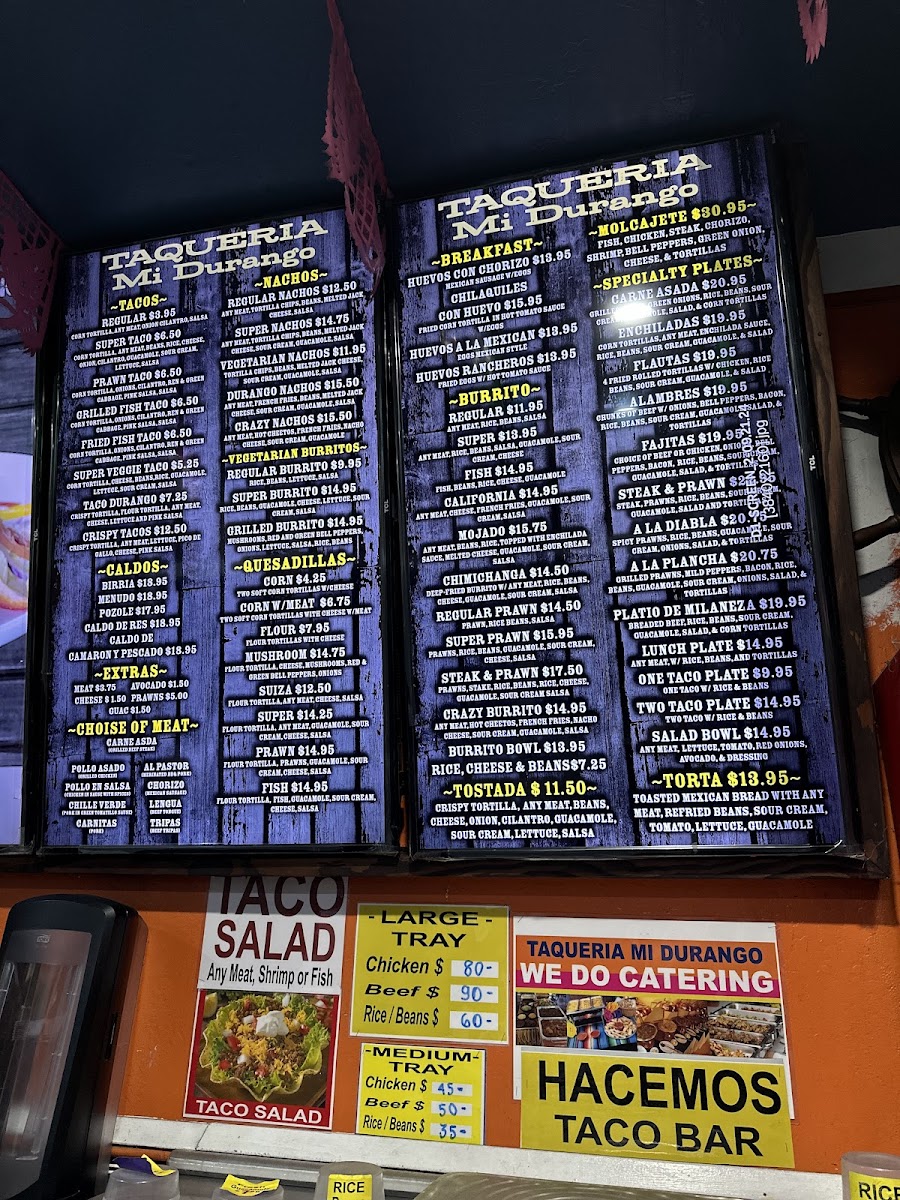 TAQUERIA
Mi Durango
~TACOS~
REGULAR $3.95
CORN TORTILLA, ANY MEAT, ONION CILANTRO, SALSA
SUPER TACO $6.50
CORN TORTILLA, ANY MEAT, BEANS, RICE, CHEESE,
ONION, CILANTRO, GUACAMOLE, SOUR CREAM,
LETTUCE, SALSA
PRAWN TACO $6.50
CORN TORTILLA, ONIONS, CILANTRO, RED & GREEN
CABBAGE, PINK SALSA, SALSA
GRILLED FISH TACO $6.50
CORN TORTILLA, ONIONS, CILANTRO, RED & GREEN
CABBAGE, PINK SALSA, SALSA
FRIED FISH TACO $6.50
CORN TORTILLA, ONIONS, CILANTRO, RED & GREEN
CABBAGE, PINK SALSA, SALSA
SUPER VEGGIE TACO $5.25
CORN TORTILLA, CHEESE, BEANS, RICE, GUACAMOLE,
LETTUCE, SOUR CREAM, SALSA
TACO DURANGO $7.25
CRISPY TORTILLA, FLOUR TORTILLA, ANY MEAT,
CHEESE, LETTUCE AND PINK SALSA
CRISPY TACOS $12.50
CRISPY TORTILLA, ANY MEAT, LETTUCE, PICO DE
GALLO, CHEESE, PINK SALSA
~CALDOS~
BIRRIA $18.95
MENUDO $18.95
POZOLE $17.95
CALDO DE RES $18.95
CALDO DE
CAMARON Y PESCADO $18.95
~EXTRAS~
MEAT $3.75 AVOCADO $1.50
CHEESE $ 1.50 PRAWNS $5.00
GUAC $1.50
~CHOISE OF MEAT~
CARNE ASDA
(GRILLED BEEF STEAK)
POLLO ASADO
(GRILLED CHICKEN)
POLLO EN SALSA
(CHICKEN IN SAUCE WITH SPICES)
CHILLE VERDE
(PORK IN GREEN TOMATILLO SAUCE)
CARNITAS
(PORK)
AL PASTOR
(MARINATED BBQ PORK)
CHORIZO
(MEXICAN SAUSAGE)
LENGUA
(BEEF TONGUE)
TRIPAS
(BEEF TRIPAS)
~NACHOS~
REGULAR NACHOS $12.50
ANY MEAT, TORTILLA CHIPS, BEANS, MELTED JACK
CHEESE, SALSA
SUPER NACHOS $14.75
ANY MEAT, TORTILLA CHIPS, BEANS, MELTED JACK
CHEESE, SOUR CREAM, GUACAMOLE, SALSA
VEGETARIAN NACHOS $11.95
TORTILLA CHIPS, BEANS, MELTED JACK CHEESE,
SOUR CREAM, GUACAMOLE, SALSA
DURANGO NACHOS $15.50
ANY MEAT, FRENCH FRIES, BEANS, MELTED JACK
CHEESE, SOUR CREAM, GUACAMOLE, SALSA
CRAZY NACHOS $15.50
ANY MEAT, HOT CHEETOS, FRENCH FRIES, NACHO
CHEESE, SOUR CREAM, GUACAMOLE
~VEGETARIAN BURRITOS~
REGULAR BURRITO $9.95
RICE, BEANS, LETTUCE, SALSA
SUPER BURRITO $14.95
RICE, BEANS, GUACAMOLE, CHEESE, LETTUCE, SOUR
CREAM, SALSA
GRILLED BURRITO $14.95
MUSHROOMS, RED AND GREEN BELL PEPPERS,
ONIONS, LETTUCE, SALSA, RICE, BEANS
~QUESADILLAS~
CORN $4.25
TWO SOFT CORN TORTILLAS W/CHEESE
CORN W/MEAT $6.75
TWO SOFT CORN TORTILLAS WITH CHEESE W/MEAT
FLOUR $7.95
FLOUR TORTILLAS WITH CHEESE
MUSHROOM $14.75
FLOUR TORTILLA, CHEESE, MUSHROOMS, RED &
GREEN BELL PEPPERS, ONIONS
SUIZA $12.50
FLOUR TORTILLA, ANY MEAT, CHEESE, SALSA
SUPER $14.25
FLOUR TORTILLA, ANY MEAT, GUACAMOLE, SOUR
CREAM, CHEESE, SALSA
PRAWN $14.95
FLOUR TORTILLA, PRAWNS, GUACAMOLE, SOUR
CREAM, CHEESE, SALSA
FISH $14.95
FLOUR TORTILLA, FISH, GUACAMOLE, SOUR CREAM,
CHEESE, SALSA
TCL
TAQUERIA
Mi Durango
~BREAKFAST~
HUEVOS CON CHORIZO $13.95
MEXICAN SAUSAGE W/EGGS
CHILAQUILES
CON HUEVO $15.95
FRIED CORN TORTILLA IN HOT TOMATO SAUCE
W/EGGS
HUEVOS A LA MEXICAN $13.95
EGGS MEXICAN STYLE
HUEVOS RANCHEROS $13.95
FRIED EGGS W/ HOT TOMATO SAUCE
~BURRITO~
REGULAR $11.95
ANY MEAT, RICE, BEANS, SALSA
SUPER $13.95
ANY MEAT, RICE, BEANS, SALSA, GUACAMOLE, SOUR
CREAM, CHEESE
FISH $14.95
FISH, BEANS, RICE, CHEESE, GUACAMOLE
CALIFORNIA $14.95
ANY MEAT, CHEESE, FRENCH FRIES, GUACAMOLE, SOUR
CREAM, SALSA
MOJADO $15.75
ANY MEAT, BEANS, RICE, TOPPED WITH ENCHILADA
SAUCE, MELTED CHEESE, GUACAMOLE, SOUR CREAM,
SALSA
CHIMICHANGA $14.50
DEEP-FRIED BURRITO W/ ANY MEAT, RICE, BEANS,
CHEESE, GUACAMOLE, SOUR CREAM, SALSA
REGULAR PRAWN $14.50
PRAWN, RICE BEANS, SALSA
SUPER PRAWN $15.95
PRAWNS, RICE, BEANS, GUACAMOLE, SOUR CREAM,
CHEESE, SALSA
STEAK & PRAWN $17.50
PRAWNS, STAKE, RICE, BEANS, RICE, CHEESE,
GUACAMOLE, SOUR CREAM SALSA
CRAZY BURRITO $14.95
ANY MEAT, HOT CHEETOS, FRENCH FRIES, NACHO
CHEESE, SOUR CREAM, GUACAMOLE, SALSA
BURRITO BOWL $13.95
RICE, CHEESE & BEANS $7.25
~TOSTADA $ 11.50~
CRISPY TORTILLA, ANY MEAT, BEANS,
CHEESE, ONION, CILANTRO, GUACAMOLE,
SOUR CREAM, LETTUCE, SALSA
~MOLCAJETE $30.95~
FISH, CHICKEN, STEAK, CHORIZO,
SHRIMP, BELL PEPPERS, GREEN ONION,
CHEESE, & TORTILLAS
~SPECIALTY PLATES~
CARNE ASADA $20.95
GREEN ONIONS, RICE, BEANS, SOUR
SALAD, & CORN TORTILLAS
ENCHILADAS $19.95
CORN TORTILLAS, ANY MEAT, ENCHILADA SAUCE,
RICE, BEANS, SOUR CREAM, GUACAMOLE, & SALAD
FLAUTAS $19.95
4 FRIED ROLLED TORTILLAS W/ CHICKEN, RICE
BEANS, SOUR CREAM, GUACAMOLE, & SALAD
ALAMBRES $19.95
CHUNKS OF BEEF W/ ONIONS, BELL PEPPERS, BACON,
RICE, BEANS, SOUR CREAM, GUACAMOLE, SALAD, &
TORTILLAS
FAJITAS $19.95
CHOICE OF BEEF OR CHICKEN, ONION
PEPPERS, BACON, RICE, BEANS, SOUR
GUACAMOLE, SALAD, & TORTILLAS
STEAK & PRAWN
STEAK, PRAWNS, RICE, BEANS, SOUR
GUACAMOLE, SALAD AND TORTILLAS
A LA DIABLA $20.
SPICY PRAWNS, RICE, BEANS, GUACAMOLE, SOUR
CREAM, ONIONS, SALAD, & TORTILLAS
A LA PLANCHA $20.75
GRILLED PRAWNS, MILD PEPPERS, BACON, RICE,
BEANS, GUACAMOLE, SOUR CREAM, ONIONS, SALAD, &
TORTILLAS
PLATIO DE MILANEZA $19.95
BREADED BEEF, RICE, BEANS, SOUR CREAM,
GUACAMOLE, SALAD, & CORN TORTILLAS
LUNCH PLATE $14.95
ANY MEAT, W/ RICE, BEANS, AND TORTILLAS
ONE TACO PLATE $9.95
ONE TACO W/ RICE & BEANS
TWO TACO PLATE $14.95
TWO TACO W/ RICE & BEANS
SALAD BOWL $14.95
ANY MEAT, LETTUCE, TOMATO, RED ONIONS,
AVOCADO, & DRESSING
~TORTA $13.95~
TOASTED MEXICAN BREAD WITH ANY
MEAT, REFRIED BEANS, SOUR CREAM,
TOMATO, LETTUCE, GUACAMOLE
TCL
TACO
SALAD
Any Meat, Shrimp or Fish
TACO SALAD
- LARGE -
TRAY
Chicken $ 80-
Beef $ 90-
Rice / Beans $ 60-
-MEDIUM-
TRAY
Chicken $ 45-
Beef $ 50-
Rice / Beans $ 35-
TAQUERIA MI DURANGO
WE DO CATERING
HACEMOS
TACO BAR
RICE
RICE